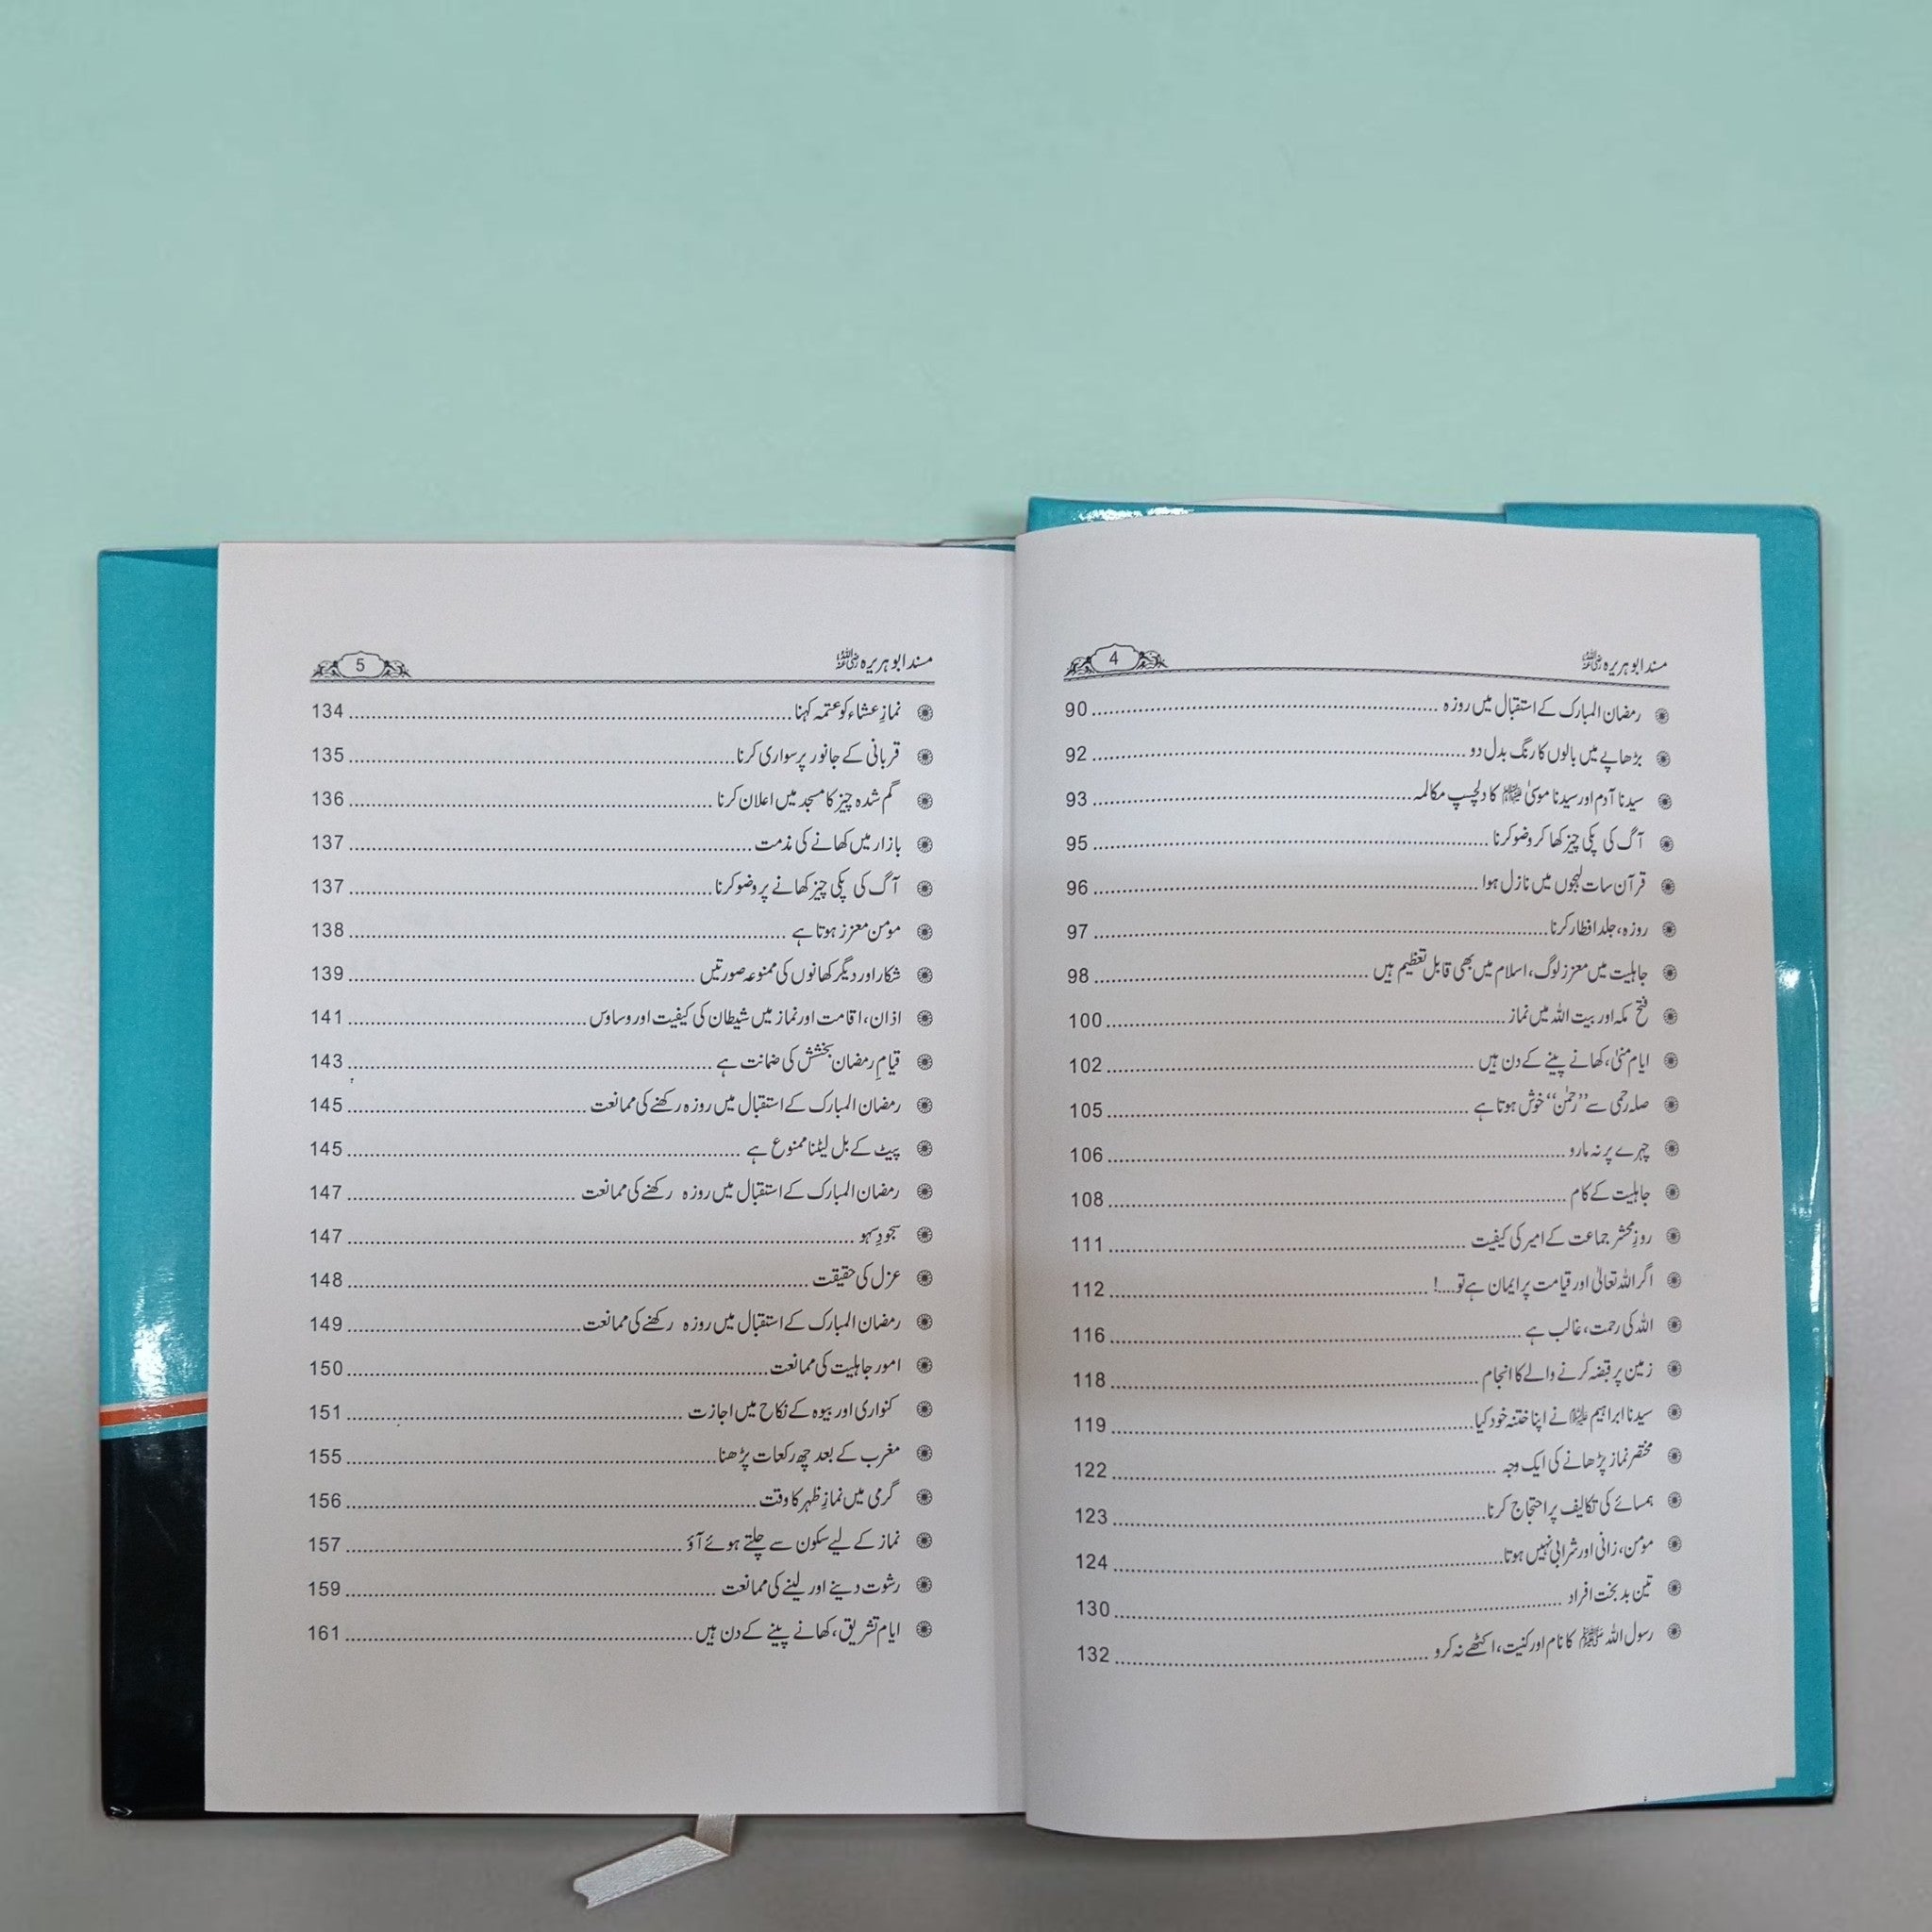 مسند ابو ہریرہ رضی اللہ عنہ 4
رمضان المبارک کے استقبال میں روزہ ........ 90
بڑھاپے میں بالوں کا رنگ بدل دو ........ 92
سیدنا آدم اور سیدنا موسیٰ علیہما السلام کا دلچسپ مکالمہ ........ 93
آگ کی پکی چیز کھا کر وضو کرنا ........ 95
قرآن سات لہجوں میں نازل ہوا ........ 96
روزہ، جلد افطار کرنا ........ 97
جاہلیت میں معزز لوگ، اسلام میں بھی قابل تعظیم ہیں ........ 98
فتح مکہ اور بیت اللہ میں نماز ........ 100
ایام منیٰ، کھانے پینے کے دن ہیں ........ 102
صلہ رحمی سے ’’رحمٰن‘‘ خوش ہوتا ہے ........ 105
چہرے پر نہ مارو ........ 106
جاہلیت کے کام ........ 108
روزِ محشر جماعت کے امیر کی کیفیت ........ 111
اگر اللہ تعالیٰ اور قیامت پر ایمان ہے تو....! ........ 112
اللہ کی رحمت، غالب ہے ........ 116
زمین پر قبضہ کرنے والے کا انجام ........ 118
سیدنا ابراہیم علیہ السلام نے اپنا ختنہ خود کیا ........ 119
مختصر نماز پڑھانے کی ایک وجہ ........ 122
ہمسائے کی تکالیف پر احتجاج کرنا ........ 123
مومن، زانی اور شرابی نہیں ہوتا ........ 124
تین بد بخت افراد ........ 130
رسول اللہ ﷺ کا نام اور کنیت، اکٹھے نہ کرو ........ 132
مسند ابو ہریرہ رضی اللہ عنہ 5
نمازِ عشاء کو عتمہ کہنا ........ 134
قربانی کے جانور پر سواری کرنا ........ 135
گم شدہ چیز کا مسجد میں اعلان کرنا ........ 136
بازار میں کھانے کی مذمت ........ 137
آگ کی پکی چیز کھانے پر وضو کرنا ........ 137
مومن معزز ہوتا ہے ........ 138
شکار اور دیگر کھانوں کی ممنوعہ صورتیں ........ 139
اذان، اقامت اور نماز میں شیطان کی کیفیت اور وساوس ........ 141
قیامِ رمضان بخشش کی ضمانت ہے ........ 143
رمضان المبارک کے استقبال میں روزہ رکھنے کی ممانعت ........ 145
پیٹ کے بل لیٹنا ممنوع ہے ........ 145
رمضان المبارک کے استقبال میں روزہ رکھنے کی ممانعت ........ 147
سجودِ سہو ........ 147
عزل کی حقیقت ........ 148
رمضان المبارک کے استقبال میں روزہ رکھنے کی ممانعت ........ 149
امور جاہلیت کی ممانعت ........ 150
کنواری اور بیوہ کے نکاح میں اجازت ........ 151
مغرب کے بعد چھ رکعات پڑھنا ........ 155
گرمی میں نمازِ ظہر کا وقت ........ 156
نماز کے لیے سکون سے چلتے ہوئے آؤ ........ 157
رشوت دینے اور لینے کی ممانعت ........ 159
ایام تشریق، کھانے پینے کے دن ہیں ........ 161